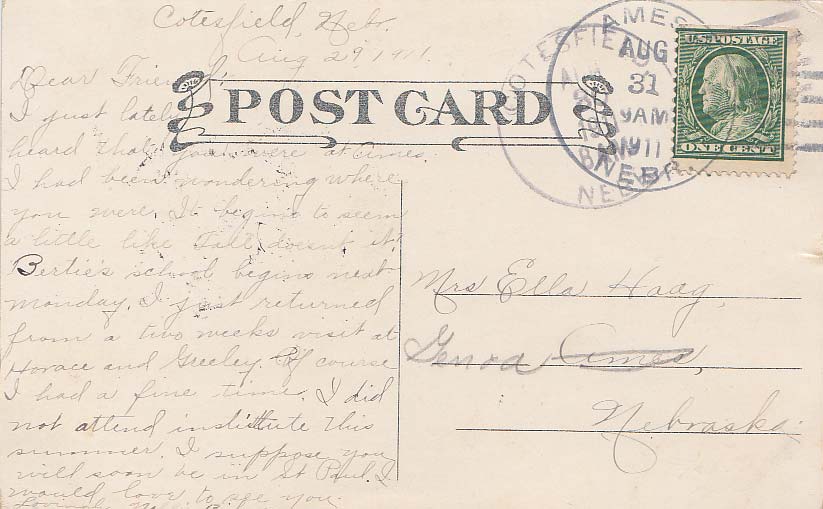 Cotesfield, Nebr.
Aug 29, 1911.
Dear Friend:
I just lately
heard that you were at Ames.
I had been wondering where
you were. It begins to seem
a little like Fall doesn't it?
Bertie's school begins next
monday. I just returned
from a two weeks visit at
Horace and Greeley. Of course
I had a fine time. I did
not attend institute this
summer. I suppose you
will soon be in St Paul. I
would love to see you.
Lovingly
POST CARD
COTESFIELD
NEBR.
AMES
AUG
31
9AM
1911
NEBR.
U.S. POSTAGE
ONE CENT
Mrs Ella Haag,
Genoa Ames,
Nebraska.